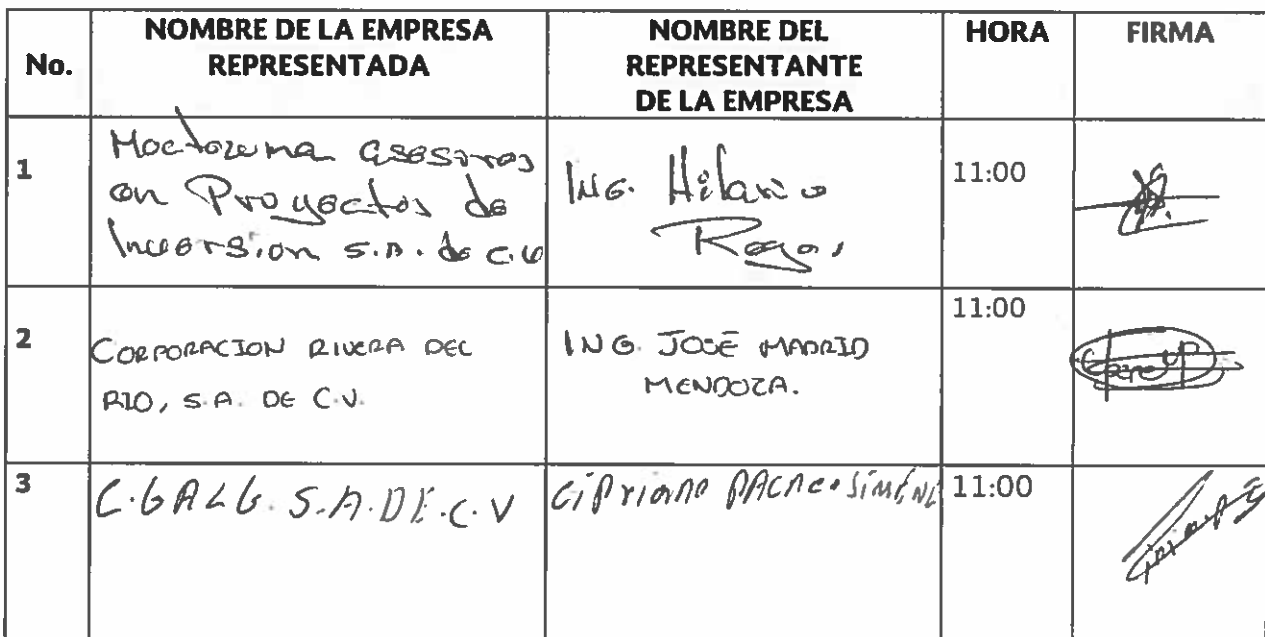 No.
NOMBRE DE LA EMPRESA
REPRESENTADA
NOMBRE DEL
REPRESENTANTE
DE LA EMPRESA
HORA
FIRMA
1
Moctozuma asesores
en Proyectos de
Inversion S.A. de C.V
ING. Hilario
Rojas
11:00
2
CORPORACION RIVERA DEL
RIO, S.A. DE C.V.
ING. JOSÉ MADRID
MENDOZA.
11:00
3
C.GALG. S.A.DE.C.V
Cipriano PACHECO
11:00